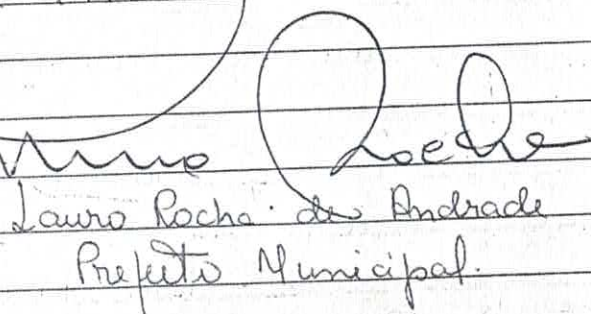 Rocha
Lauro Rocha de Andrade
Prefeito Municipal.